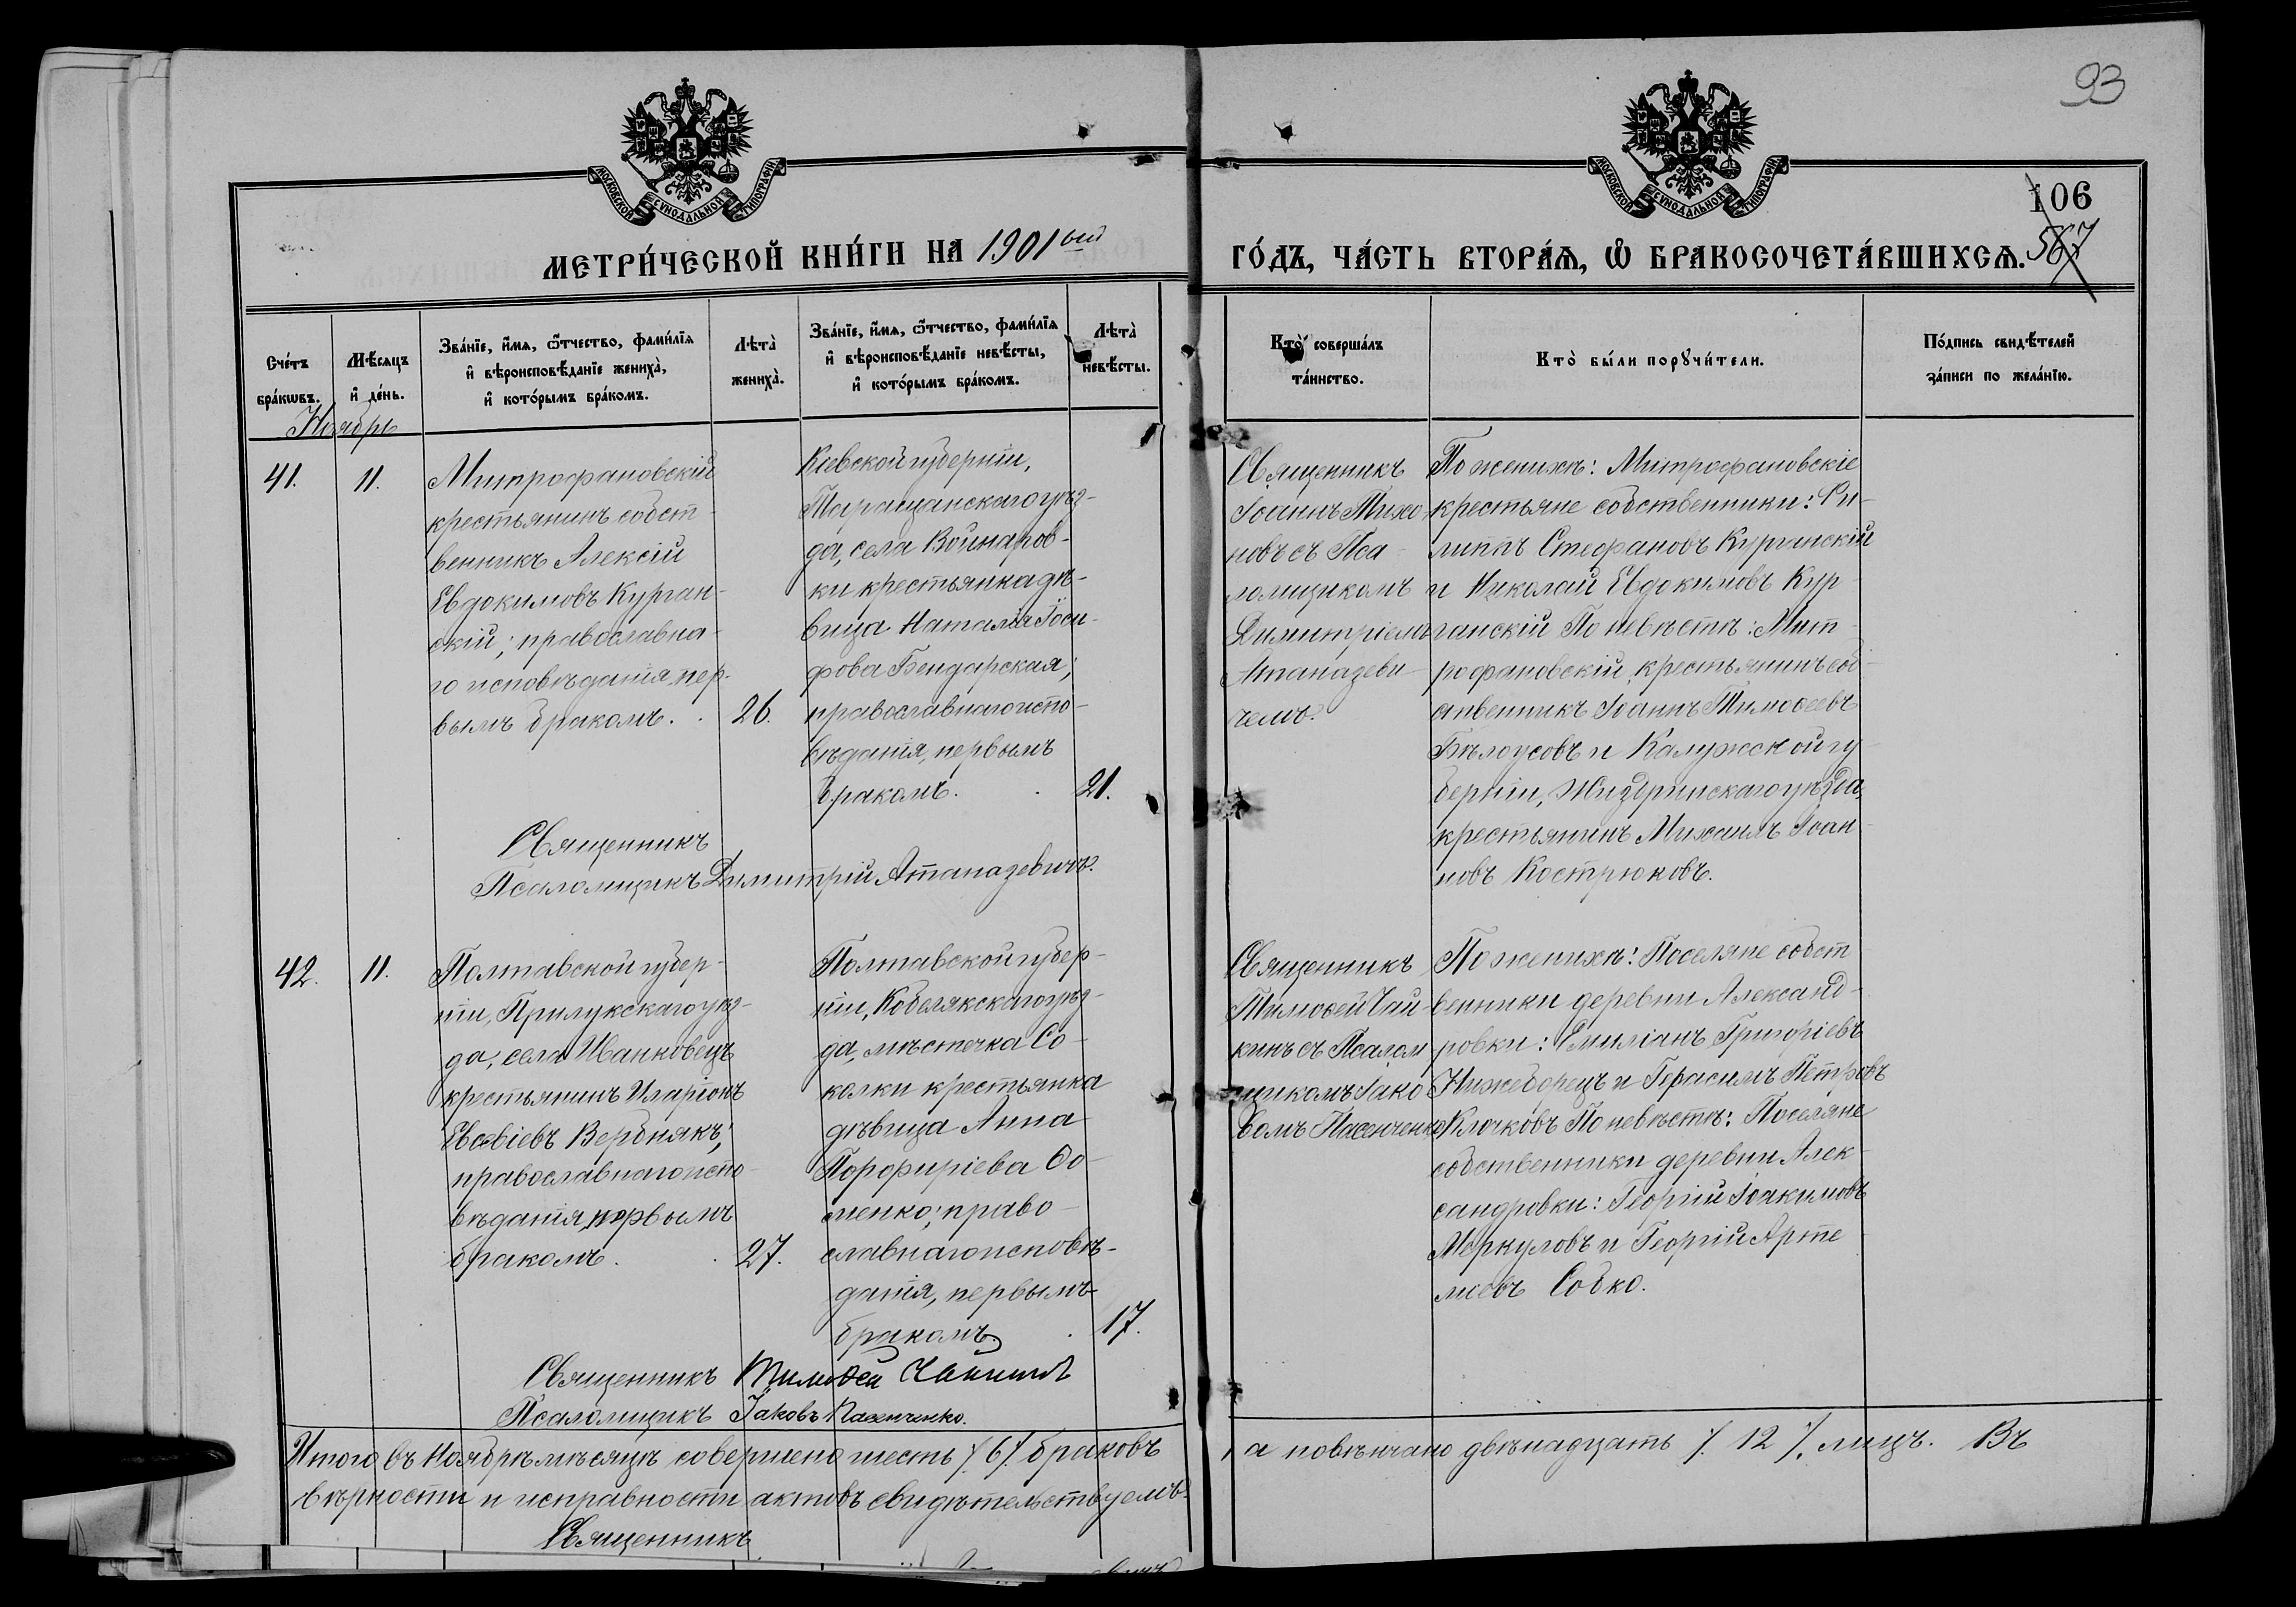 93
МОСКОВСКОЙ СѴНОДАЛЬНОЙ ТИПОГРАФІИ
МОСКОВСКОЙ СѴНОДАЛЬНОЙ ТИПОГРАФІИ
106
567
МЕТРИ́ЧЕСКОЙ КНИ́ГИ НА 1901ый
ГО́ДЪ, ЧА́СТЬ ВТОРА́Ѧ, Ѡ҆ БРАКОСОЧЕТА́ВШИХСѦ.
Сче́тъ бра́кѡвъ.
Мѣ́сѧцъ и҆ де́нь.
Зва́нїе, и҆́мѧ, ѻ҆́тчество, фами́лїѧ и҆ вѣроисповѣ́данїе жениха̀, и҆ кото́рымъ бра́комъ.
Лѣта̀ жениха̀.
Зва́нїе, и҆́мѧ, ѻ҆́тчество, фами́лїѧ и҆ вѣроисповѣ́данїе невѣ́сты, и҆ кото́рымъ бра́комъ.
Лѣта̀ невѣ́сты.
Кто̀ соверша́лъ та́инство.
Кто̀ бы́ли порꙋчи́тели.
По́дпись свидѣ́телей за́писи по жела́нїю.
Ноябрь
41.
11.
Митрофановскій
крестьянинъ собст-
венникъ Алексій
Евдокимовъ Курган-
скій; православна-
го исповѣданія, пер-
вымъ бракомъ.
26.
Кіевской губерніи,
Таращанскаго уѣз-
да, села Войнаров-
ки крестьянка дѣ-
вица Наталія Іоси-
фова Бендарская;
православнаго испо-
вѣданія, первымъ
бракомъ.
21.
Священникъ
Іоаннъ Тихо-
новъ съ Пса-
ломщикомъ
Димитріемъ
Атаназеви-
чемъ.
По женихѣ: Митрофановскіе
крестьяне собственники: Фи-
липпъ Стефановъ Курганскій
и Николай Евдокимовъ Кур-
ганскій По невѣстѣ: Мит-
рофановскій, крестьянинъ соб-
ственникъ Іоаннъ Тимоѳеевъ
Бѣлоусовъ и Калужской гу-
берніи, Жиздринскаго уѣзда,
крестьянинъ Михаилъ Іоан-
новъ Кострюковъ.
Священникъ
Псаломщикъ Димитрій Атаназевичъ.
42.
11.
Полтавской губер-
ніи, Прилукскаго уѣз-
да, села Иванковецъ
крестьянинъ Иларіонъ
Евсевіевъ Вербнякъ;
православнаго испо-
вѣданія, первымъ
бракомъ.
27.
Полтавской губер-
ніи, Кобелякскаго уѣз-
да, мѣстечка Со-
колки крестьянка
дѣвица Анна
Порфиріева Ѳо-
менко; право-
славнаго исповѣ-
данія, первымъ
бракомъ.
17.
Священникъ
Тимоѳей Чай-
кинъ съ Псалом
щикомъ Іако
вомъ Пасенченко
По женихѣ: Поселяне собст
венники деревни Александ-
ровки: Емиліанъ Григоріевъ
Нижеборецъ и Герасимъ Петровъ
Клочковъ По невѣстѣ: Поселяне
собственники деревни Алек-
сандровки: Георгій Іоакимовъ
Меркуловъ и Георгій Арте-
міевъ Собко.
Священникъ Тимоѳей Чайкинъ
Псаломщикъ Іаковъ Пасенченко.
Итого въ Ноябрѣ мѣсяцѣ совершено шесть /. 6 /. браковъ
а повѣнчано двѣнадцать /. 12 /. лицъ. Въ
вѣрности и исправности актовъ свидѣтельствуемъ.
Священникъ